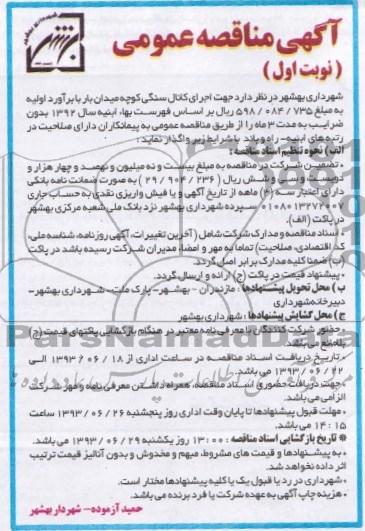 آگهی مناقصه عمومی
( نوبت اول )
شهرداری بهشهر در نظر دارد جهت اجرای کانال سنگی کوچه میدان بار با برآورد اولیه
به مبلغ ۵۹۸/۰۸۴/۷۳۵ ریال بر اساس فهرست بها، ابنیه سال ۱۳۹۲ بدون
ضرایب به مدت ۳ ماه را از طریق مناقصه عمومی به پیمانکاران دارای صلاحیت در
رتبه های ابنیه- راه و باند با شرایط زیر واگذار نماید:
الف) نحوه تنظیم اسناد مناقصه :
- تضمین شرکت در مناقصه به مبلغ بیست و نه میلیون و نهصد و چهار هزار و
دویست و سی و شش ریال ( ۲۹/۹۰۴/۲۳۶ ) به صورت ضمانت نامه بانکی
دارای اعتبار سه (۳) ماهه از تاریخ آگهی و یا فیش واریزی نقدی به حساب جاری
۰۱۰۸۰۱۳۲۷۲۰۰۷ سپرده شهرداری بهشهر نزد بانک ملی شعبه مرکزی بهشهر
در پاکت (الف).
- اسناد مناقصه و مدارک شرکت شامل ( آخرین تغییرات، آگهی روزنامه، شناسه ملی،
کد اقتصادی، صلاحیت) تماما به مهر و امضاء مدیران شرکت رسیده باشد در پاکت
(ب) ضمنا کلیه مدارک برابر اصل گردد.
- پیشنهاد قیمت در پاکت (ج) ارائه و ارسال گردد.
ب ) محل تحویل پیشنهادها : مازندران - بهشهر- پارک ملت- شهرداری بهشهر-
دبیرخانه شهرداری
ج) محل گشایش پیشنهادها : شهرداری بهشهر
- حضور شرکت کنندگان با معرفی نامه معتبر در هنگام بازگشایی پاکتهای قیمت (ج)
بلامانع می باشد.
- تاریخ دریافت اسناد مناقصه در ساعات اداری از ۱۳۹۳/۰۶/۱۸ الی
۱۳۹۳/۰۶/۲۲ می باشد.
- جهت دریافت حضوری اسناد مناقصه، همراه داشتن معرفی نامه و مهر شرکت
الزامی می باشد.
- مهلت قبول پیشنهادها تا پایان وقت اداری روز پنجشنبه ۱۳۹۳/۰۶/۲۶ ساعت
۱۴:۱۵ می باشد.
* تاریخ بازگشایی اسناد مناقصه : ۱۳:۰۰ روز یکشنبه ۱۳۹۳/۰۶/۲۹ می باشد.
- به پیشنهادها و قیمت های مشروط، مبهم و مخدوش و بدون آنالیز قیمت ترتیب
اثر داده نخواهد شد.
- شهرداری در رد یا قبول یک یا کلیه پیشنهادها مختار است.
- هزینه چاپ آگهی به عهده شرکت یا فرد برنده می باشد.
حمید آزموده- شهردار بهشهر
ParsNamadData